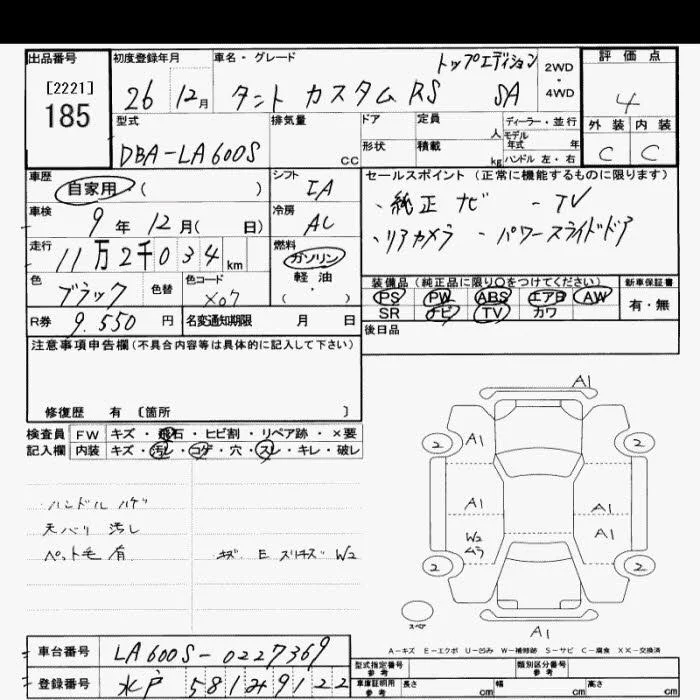 出品番号
[2221]
185
初度登録年月
26 12月
車名・グレード
トップエディション
タント カスタム RS SA
2WD
・
4WD
評価点
4
外装 内装
C C
型式
DBA-LA600S
排気量
CC
ドア
形状
定員
人
積載
kg
ディーラー・並行
モデル
年式 年
ハンドル 左・右
車歴
自家用・( )
車検
9年 12月( 日)
走行
11万2千034 km
色
ブラック
色替
色コード
X07
シフト
IA
冷房
AC
燃料
ガソリン
軽油
( ・ )
セールスポイント (正常に機能するものに限ります)
・純正ナビ -TV
・リアカメラ ・パワースライドドア
装備品(純正品に限り〇をつけてください)
PS PW ABS エアB AW
SR ナビ TV カワ
新車保証書
有・無
後日品
R券 9.550 円
名変通知期限 月 日
注意事項申告欄(不具合内容等は具体的に記入して下さい)
修復歴 有 〔箇所 〕
検査員
記入欄
FW キズ・飛石・ヒビ割・リペア跡・×要
内装 キズ・汚レ・コゲ・穴・スレ・キレ・破レ
ハンドル ハゲ
天バリ 汚レ
ペット毛 有
キズ E スリキズ W2
A1
2 A1 2
A1 A1
A1
W2
ムラ
2 2
スペア
A1
A-キズ E-エクボ U-凹み W-補修跡 S-サビ C-腐食 XX-交換済
車台番号 LA600S-0227369
登録番号 水戸 581 み 9122
型式指定番号
参考
類別区分番号
参考
車庫証明用
参考
長さ cm 幅 cm 高さ cm